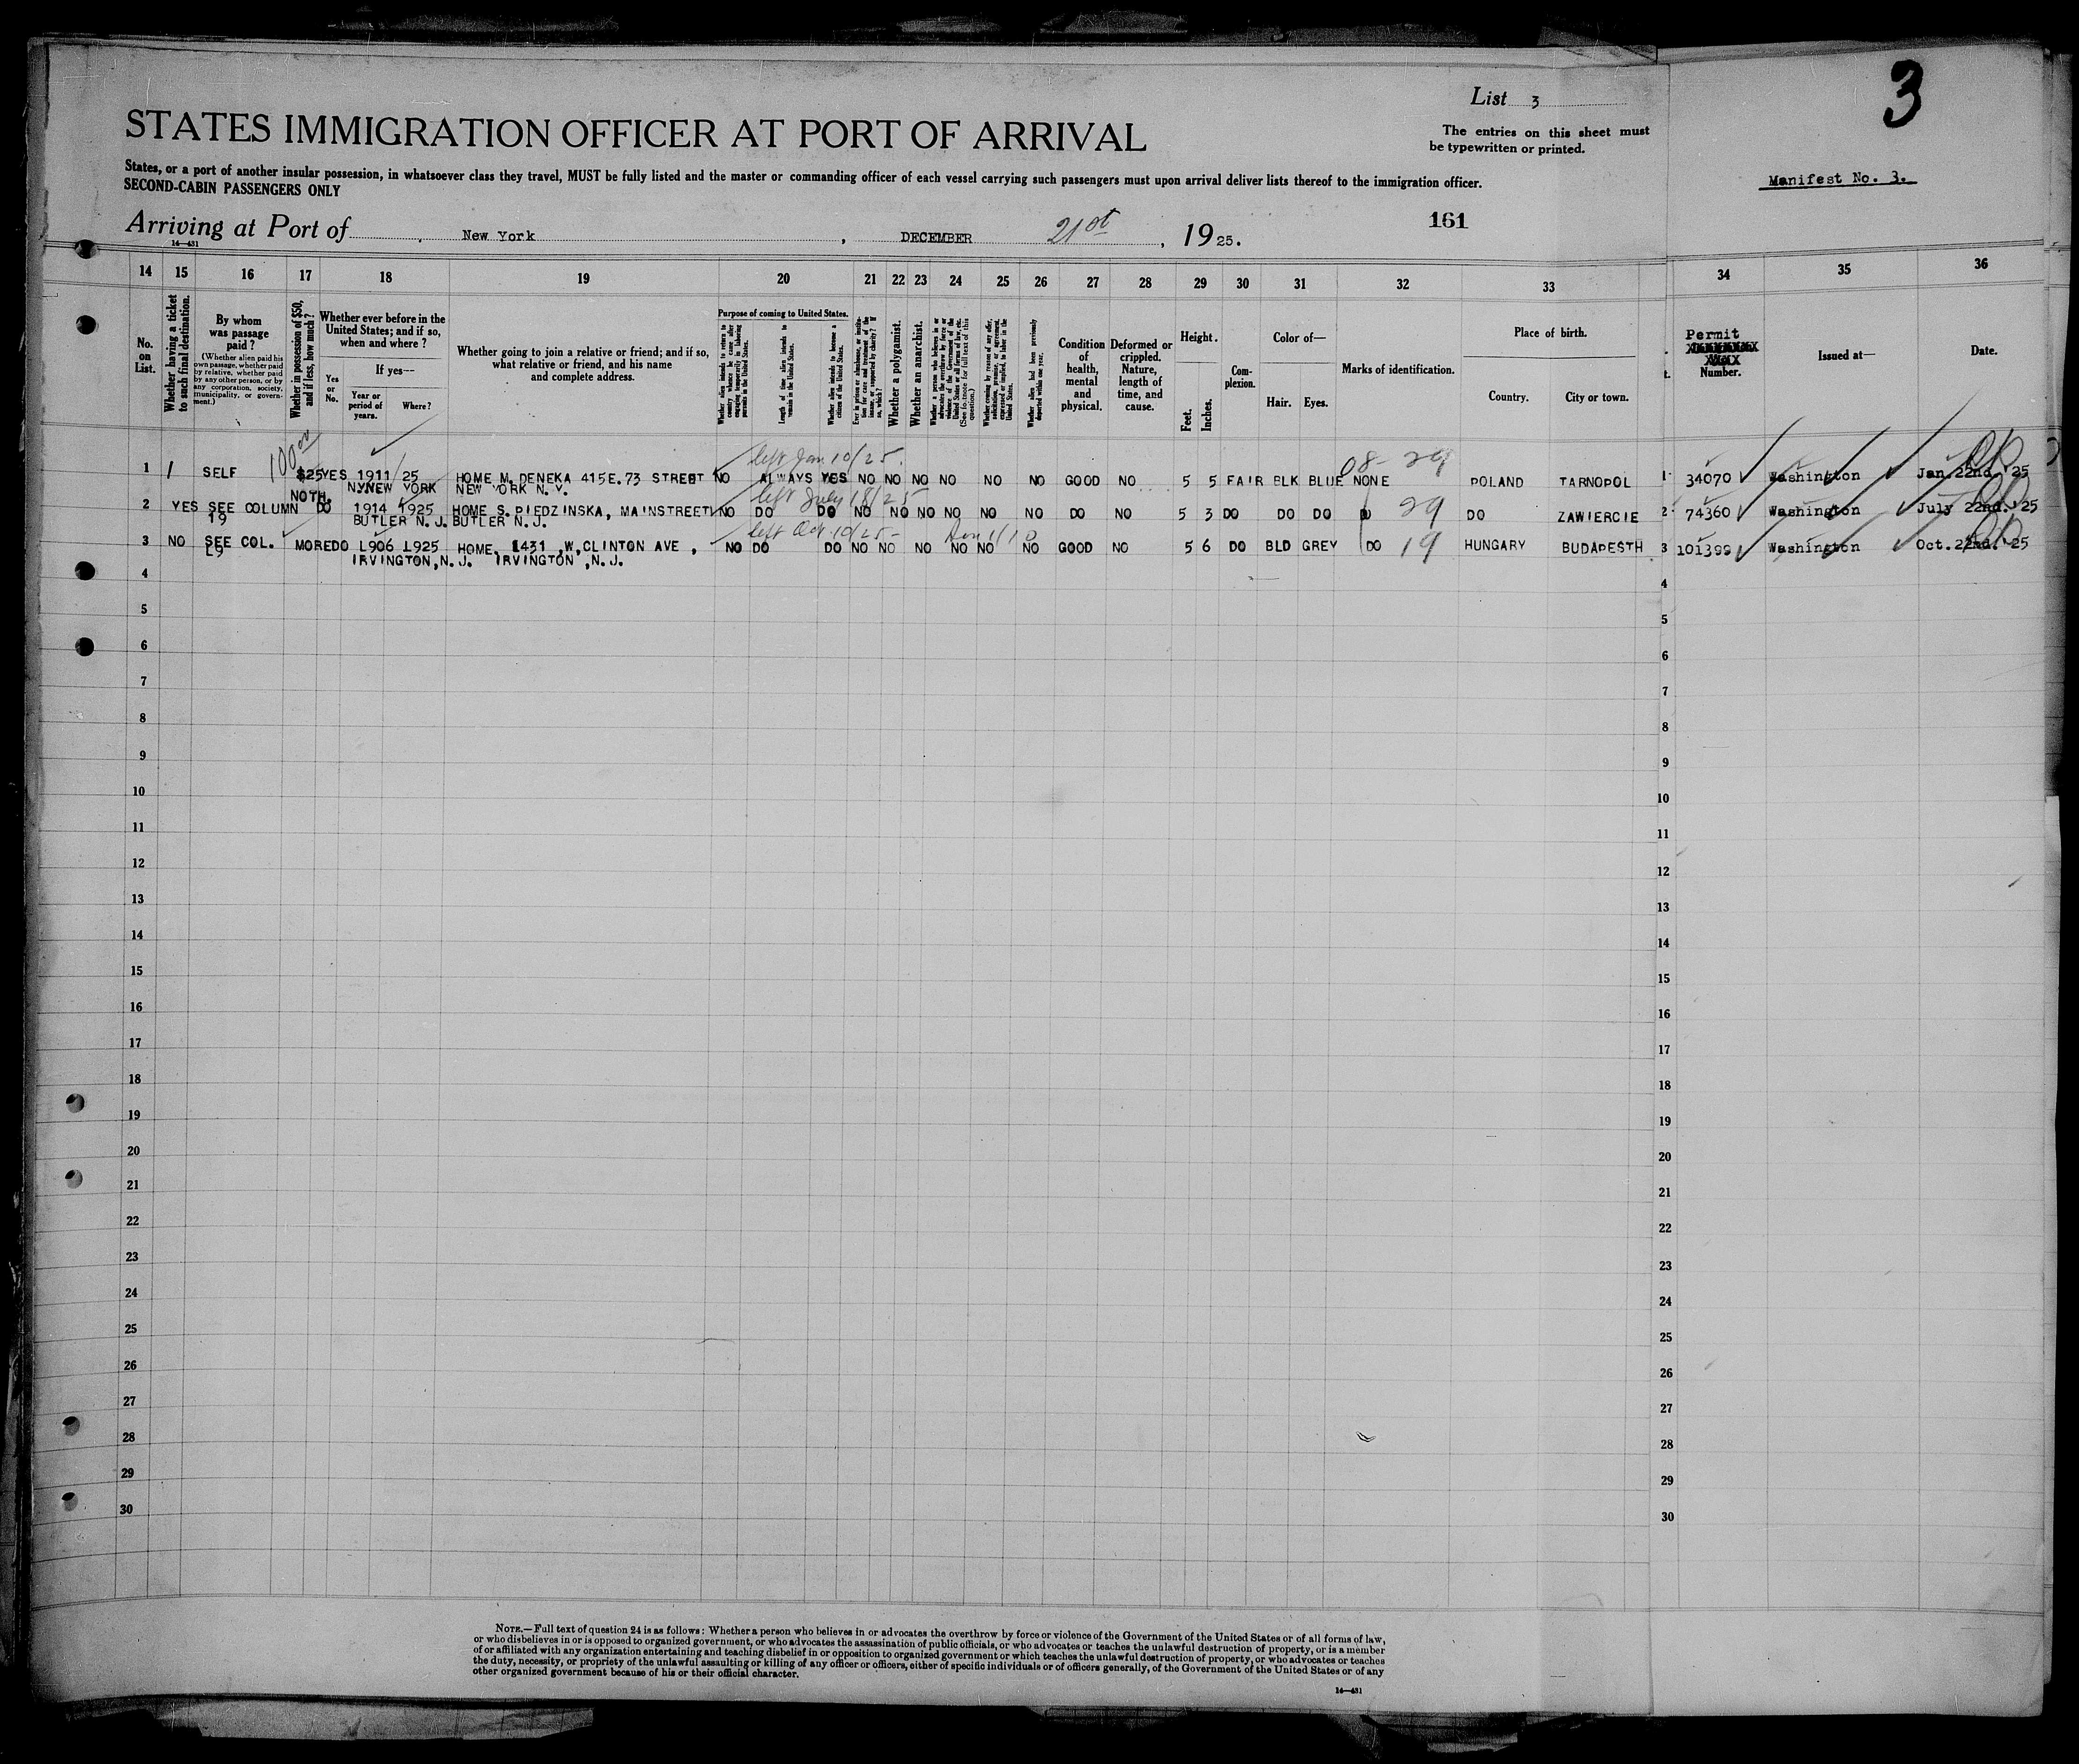 3
List 3
STATES IMMIGRATION OFFICER AT PORT OF ARRIVAL
The entries on this sheet must
be typewritten or printed.
States, or a port of another insular possession, in whatsoever class they travel, MUST be fully listed and the master or commanding officer of each vessel carrying such passengers must upon arrival deliver lists thereof to the immigration officer.
SECOND-CABIN PASSENGERS ONLY
Manifest No. 3.
Arriving at Port of New York, DECEMBER 21st, 1925.
161
14—431
14 15 16 17 18 19 20 21 22 23 24 25 26 27 28 29 30 31 32 33 34 35 36
No. on List.
Whether having a ticket to such final destination.
By whom was passage paid?
(Whether alien paid his own passage, whether paid by relative, whether paid by any other person, or by any corporation, society, municipality, or government.)
Whether in possession of $50, and if less, how much?
Whether ever before in the United States; and if so, when and where?
Yes or No.
If yes—
Year or period of years.
Where?
Whether going to join a relative or friend; and if so, what relative or friend, and his name and complete address.
Purpose of coming to United States.
Whether alien intends to return to country whence he came after engaging temporarily in laboring pursuits in the United States.
Length of time alien intends to remain in the United States.
Whether alien intends to become a citizen of the United States.
Whether a polygamist.
Whether an anarchist.
Condition of health, mental and physical.
Deformed or crippled. Nature, length of time, and cause.
Height.
Feet.
Inches.
Complexion.
Color of—
Hair. Eyes.
Marks of identification.
Place of birth.
Country.
City or town.
Permit
Number.
Issued at—
Date.
100.00
left Jan 10/25.
08-29
1 / SELF $25 YES 1911/25 HOME M. DENEKA 415E.73 STREET NO ALWAYS YES NO NO NO NO NO NO GOOD NO 5 5 FAIR BLK BLUE NONE POLAND TARNOPOL 1 34070 Washington Jan.22nd.'25 OK
N.Y.NEW YORK NEW YORK N.Y.
NOTH.
left July 18/25
2 YES SEE COLUMN DO 1914 1925 HOME S. PIEDZINSKA, MAINSTREET NO DO DO NO NO NO NO NO NO DO NO 5 3 DO DO DO 29 DO ZAWIERCIE 2 74360 Washington July 22nd.'25
19 BUTLER N.J. BUTLER N.J.
left Oct 10/25-
3 NO SEE COL. MORE DO L906 L925 HOME, 1431 ,W,CLINTON AVE , NO DO DO NO NO NO NO NO NO GOOD NO 5 6 DO BLD GREY DO 19 HUNGARY BUDAPESTH 3 101399 Washington Oct.22nd.'25 OK
L9 IRVINGTON,N.J. IRVINGTON ,N.J.
4 4
5 5
6 6
7 7
8 8
9 9
10 10
11 11
12 12
13 13
14 14
15 15
16 16
17 17
18 18
19 19
20 20
21 21
22 22
23 23
24 24
25 25
26 26
27 27
28 28
29 29
30 30
NOTE.—Full text of question 24 is as follows: Whether a person who believes in or advocates the overthrow by force or violence of the Government of the United States or of all forms of law,
or who disbelieves in or is opposed to organized government, or who advocates the assassination of public officials, or who advocates or teaches the unlawful destruction of property, or is a member
of or affiliated with any organization entertaining and teaching disbelief in or opposition to organized government or which teaches the unlawful destruction of property, or who advocates or teaches
the duty, necessity, or propriety of the unlawful assaulting or killing of any officer or officers, either of specific individuals or of officers generally, of the Government of the United States or of any
other organized government because of his or their official character.
14—431